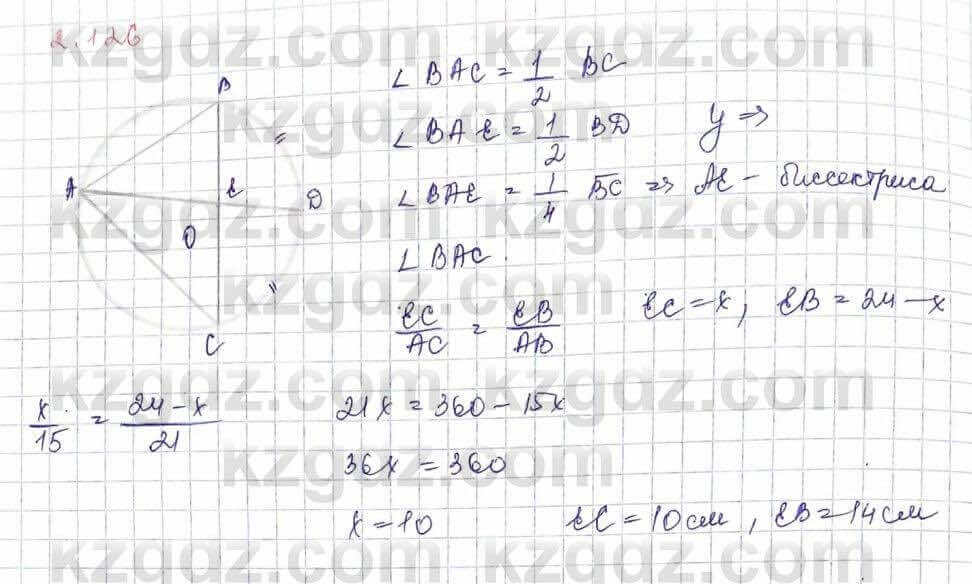 2.126
kzgdz.com
B
A
E
D
O
C
∠BAC = 1/2 BC
∠BAE = 1/2 BD у ⇒
∠BAE = 1/4 BC ⇒ AE - биссектриса
∠BAC.
EC/AC = EB/AB EC = x, EB = 24 - x
x/15 = 24 - x/21 21x = 360 - 15x
36x = 360
x = 10 EC = 10 см, EB = 14 см